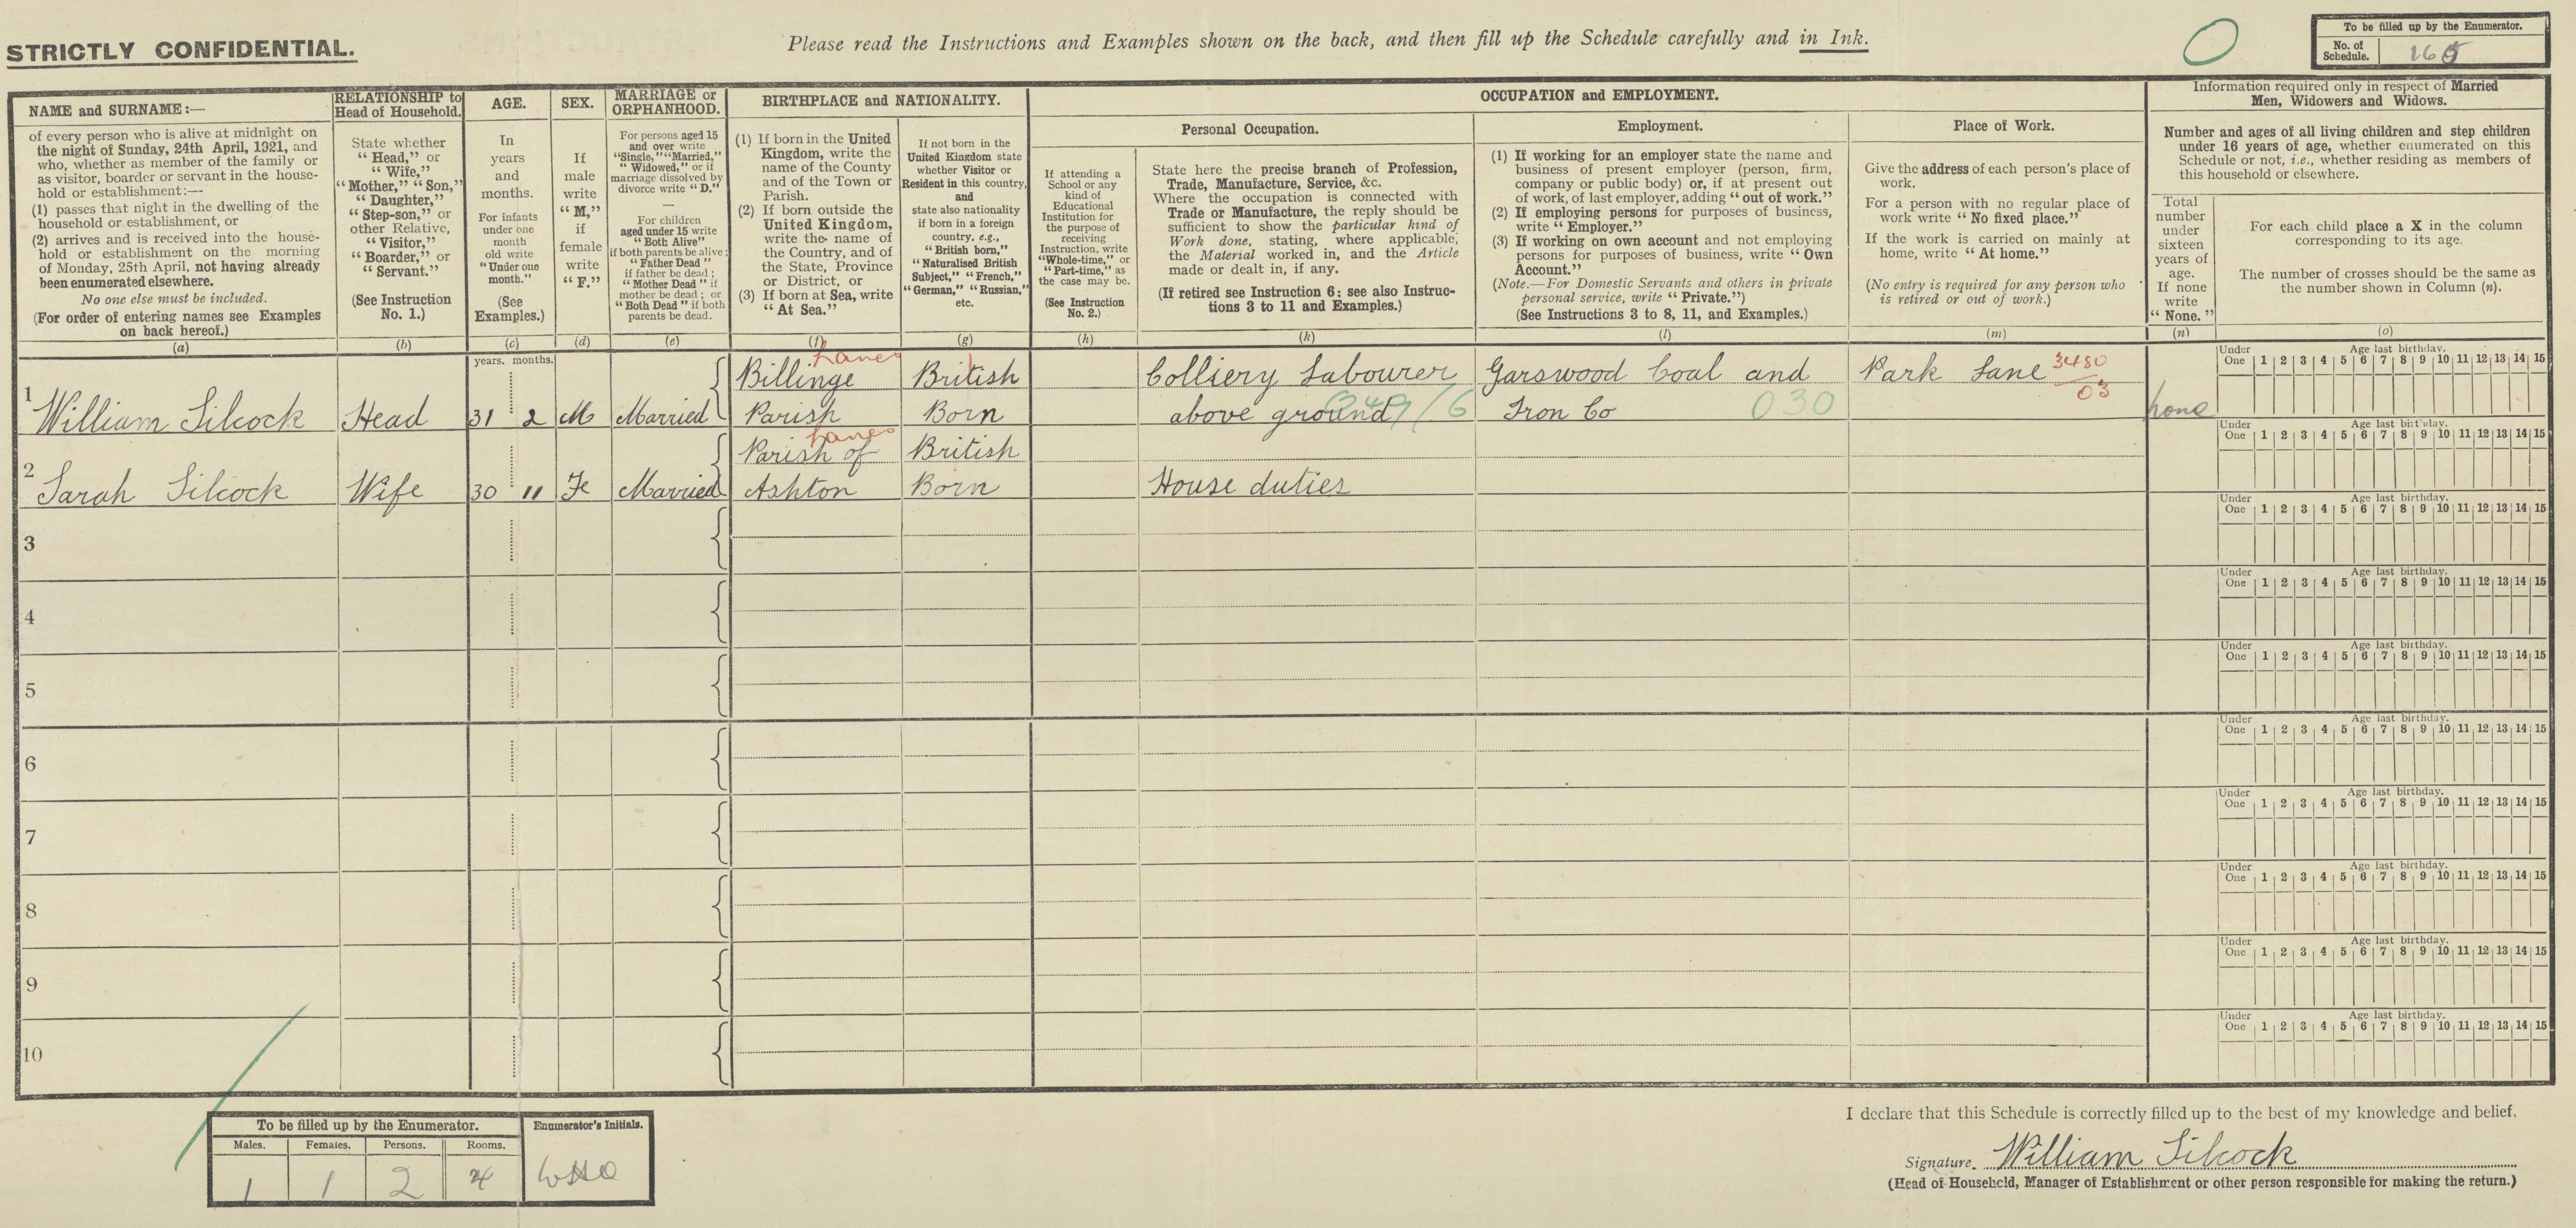 STRICTLY CONFIDENTIAL.
Please read the Instructions and Examples shown on the back, and then fill up the Schedule carefully and in Ink.
To be filled up by the Enumerator.
No. of Schedule. 165
NAME and SURNAME:—
of every person who is alive at midnight on
the night of Sunday, 24th April, 1921, and
who, whether as member of the family or
as visitor, boarder or servant in the house-
hold or establishment:—
(1) passes that night in the dwelling of the
household or establishment, or
(2) arrives and is received into the house-
hold or establishment on the morning
of Monday, 25th April, not having already
been enumerated elsewhere.
No one else must be included.
(For order of entering names see Examples
on back hereof.)
(a)
RELATIONSHIP to
Head of Household.
State whether
“Head,” or
“Wife,”
“Mother,” “Son,”
“Daughter,”
“Step-son,” or
other Relative,
“Visitor,”
“Boarder,” or
“Servant.”
(See Instruction
No. 1.)
(b)
AGE.
In
years
and
months.
For infants
under one
month
old write
“Under one
month.”
(See
Examples.)
(c)
SEX.
If
male
write
“M,”
if
female
write
“F.”
(d)
MARRIAGE or
ORPHANHOOD.
For persons aged 15
and over write
“Single,” “Married,”
“Widowed,” or if
marriage dissolved by
divorce write “D.”
—
For children
aged under 15 write
“Both Alive”
if both parents be alive;
“Father Dead”
if father be dead;
“Mother Dead” if
mother be dead; or
“Both Dead” if both
parents be dead.
(e)
BIRTHPLACE and NATIONALITY.
(1) If born in the United
Kingdom, write the
name of the County
and of the Town or
Parish.
(2) If born outside the
United Kingdom,
write the name of
the Country, and of
the State, Province
or District, or
(3) If born at Sea, write
“At Sea.”
(f)
If not born in the
United Kingdom state
whether Visitor or
Resident in this country,
and
state also nationality
if born in a foreign
country, e.g.,
“British born,”
“Naturalised British
Subject,” “French,”
“German,” “Russian,”
etc.
(g)
OCCUPATION and EMPLOYMENT.
If attending a
School or any
kind of
Educational
Institution for
the purpose of
receiving
Instruction, write
“Whole-time,” or
“Part-time,” as
the case may be.
(See Instruction
No. 2.)
(h)
Personal Occupation.
State here the precise branch of Profession,
Trade, Manufacture, Service, &c.
Where the occupation is connected with
Trade or Manufacture, the reply should be
sufficient to show the particular kind of
Work done, stating, where applicable,
the Material worked in, and the Article
made or dealt in, if any.
(If retired see Instruction 6; see also Instruc-
tions 3 to 11 and Examples.)
(k)
Employment.
(1) If working for an employer state the name and
business of present employer (person, firm,
company or public body) or, if at present out
of work, of last employer, adding “out of work.”
(2) If employing persons for purposes of business,
write “Employer.”
(3) If working on own account and not employing
persons for purposes of business, write “Own
Account.”
(Note.—For Domestic Servants and others in private
personal service, write “Private.”)
(See Instructions 3 to 8, 11, and Examples.)
(l)
Place of Work.
Give the address of each person's place of
work.
For a person with no regular place of
work write “No fixed place.”
If the work is carried on mainly at
home, write “At home.”
(No entry is required for any person who
is retired or out of work.)
(m)
Information required only in respect of Married
Men, Widowers and Widows.
Number and ages of all living children and step children
under 16 years of age, whether enumerated on this
Schedule or not, i.e., whether residing as members of
this household or elsewhere.
Total
number
under
sixteen
years of
age.
If none
write
“None.”
(n)
For each child place a X in the column
corresponding to its age.
The number of crosses should be the same as
the number shown in Column (n).
(o)
years. months.
1 William Silcock Head 31 2 M Married Billinge Parish Lancs British Born Colliery Labourer above ground 049/6 Garswood Coal and Iron Co 030 Park Lane 3480 / 03 none
Under One Age last birthday. 1 2 3 4 5 6 7 8 9 10 11 12 13 14 15
2 Sarah Silcock Wife 30 11 Fe Married Parish of Ashton Lancs British Born House duties
Under One Age last birthday. 1 2 3 4 5 6 7 8 9 10 11 12 13 14 15
3
Under One Age last birthday. 1 2 3 4 5 6 7 8 9 10 11 12 13 14 15
4
Under One Age last birthday. 1 2 3 4 5 6 7 8 9 10 11 12 13 14 15
5
Under One Age last birthday. 1 2 3 4 5 6 7 8 9 10 11 12 13 14 15
6
Under One Age last birthday. 1 2 3 4 5 6 7 8 9 10 11 12 13 14 15
7
Under One Age last birthday. 1 2 3 4 5 6 7 8 9 10 11 12 13 14 15
8
Under One Age last birthday. 1 2 3 4 5 6 7 8 9 10 11 12 13 14 15
9
Under One Age last birthday. 1 2 3 4 5 6 7 8 9 10 11 12 13 14 15
10
Under One Age last birthday. 1 2 3 4 5 6 7 8 9 10 11 12 13 14 15
To be filled up by the Enumerator.
Enumerator's Initials.
Males. Females. Persons. Rooms.
1 1 2 4
I declare that this Schedule is correctly filled up to the best of my knowledge and belief.
Signature. William Silcock
(Head of Household, Manager of Establishment or other person responsible for making the return.)